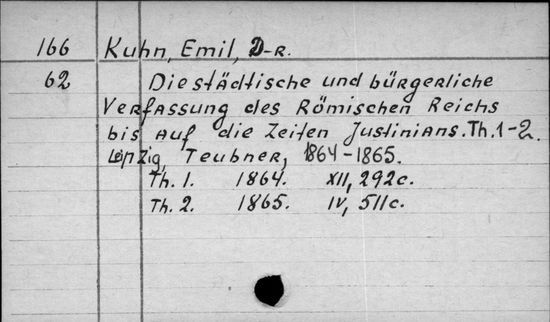 166 Kuhn, Emil, D-r.
62 Die städtische und bürgerliche
Verfassung des Römischen Reichs
bis auf die Zeiten Justinians. Th. 1-2.
Leipzig, Teubner, 1864-1865.
Th. 1. 1864. XII, 292c.
Th. 2. 1865. IV, 511c.